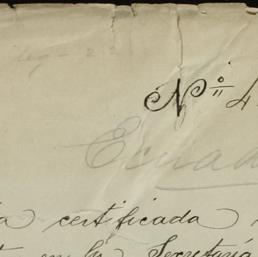 Nº 4
Ecuad
certificada
en la Secretaría